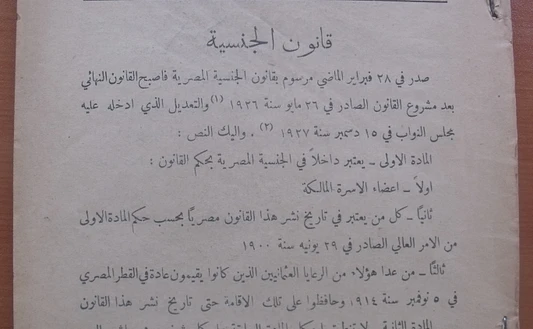 قانون الجنسية
صدر في ٢٨ فبراير الماضي مرسوم بقانون الجنسية المصرية فاصبح القانون النهائي
بعد مشروع القانون الصادر في ٢٦ مايو سنة ١٩٢٦ (١) والتعديل الذي ادخله عليه
مجلس النواب في ١٥ دسمبر سنة ١٩٢٧ (٢) ، واليك النص :
المادة الاولى – يعتبر داخلاً في الجنسية المصرية بحكم القانون :
اولاً – اعضاء الاسرة المالكة
ثانياً – كل من يعتبر في تاريخ نشر هذا القانون مصرياً بحسب حكم المادة الاولى
من الامر العالي الصادر في ٢٩ يونيه سنة ١٩٠٠
ثالثاً – من عدا هؤلاء من الرعايا العثمانيين الذين كانوا يقيمون عادة في القطر المصري
في ٥ نوفمبر سنة ٩١٤ وحافظوا على تلك الاقامة حتى تاريخ نشر هذا القانون
المادة الثانية –